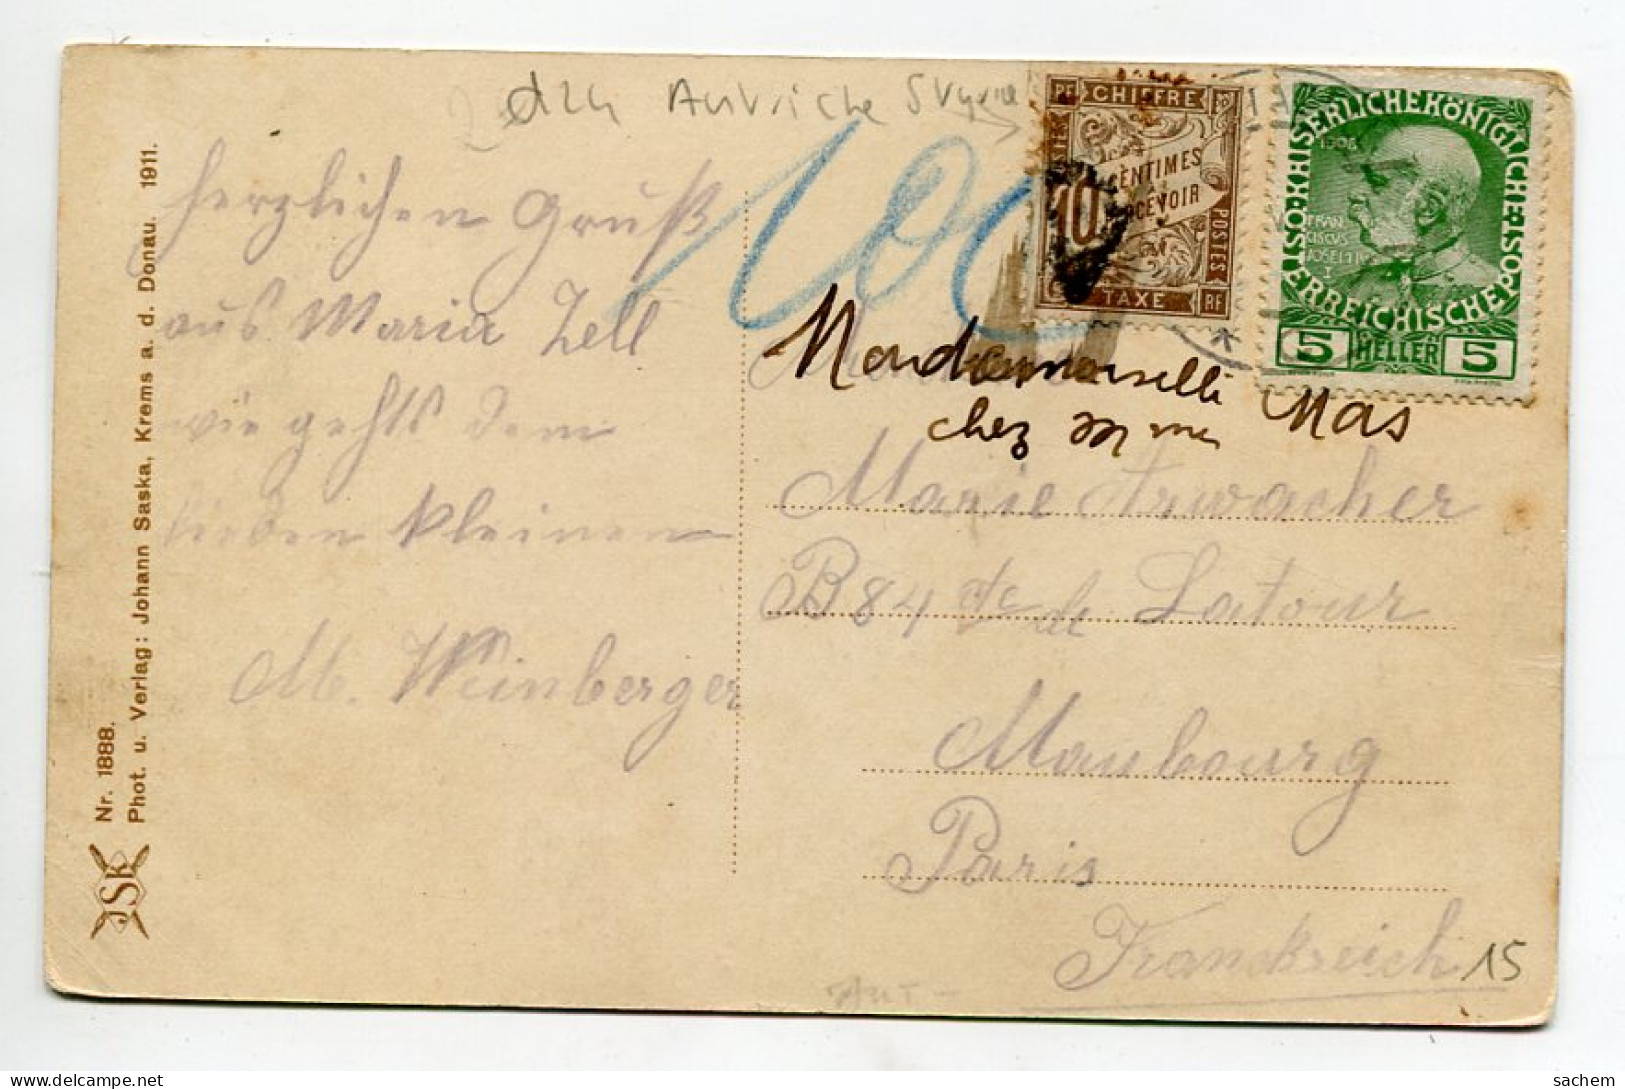 d24 Autriche Styrie
Herzlichen Gruß
aus Maria Zell
wie gehts dem
lieben kleinen
M. Weinberger
100
Mademoiselle Mas
chez Mme
Marie Arwacher
B 84 de Latour
Maubourg
Paris
Frankreich
15
Aut-
CHIFFRE
10 CENTIMES
POSTES
TAXE
RF
KAISERLICHE KÖNIGLICHE
ÖSTERREICHISCHE POST
1908
FRAN
CISCVS
IOSEPH
I
5 HELLER 5
Nr. 1888.
Phot. u. Verlag: Johann Saska, Krems a. d. Donau. 1911.
JSK
sachem